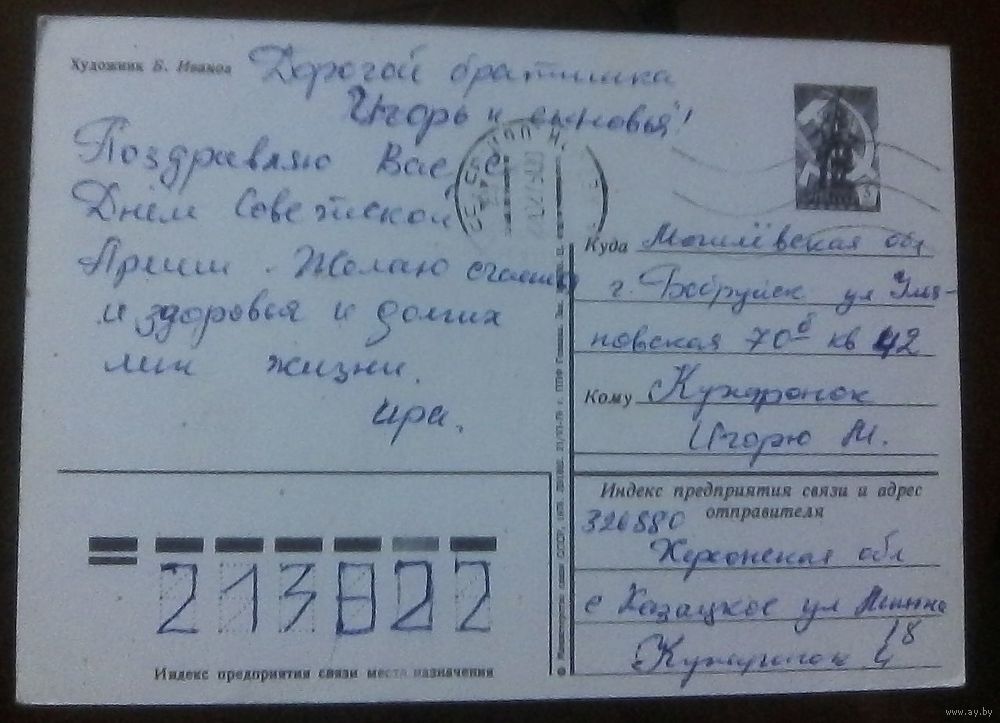 Художник Б. Иванов
Дорогой братишка
Игорь и сыновья!
Поздравляю Вас с
Днём Советской
Армии. Желаю счастья
и здоровья и долгих
лет жизни.
Ира.
Куда Могилёвская обл
г. Бобруйск ул Улья-
новская 70б кв 42
Кому
Игорю М.
Индекс предприятия связи и адрес
отправителя
326880
Херсонская обл
с Казацкое ул Ленина
18
213822
Индекс предприятия связи места назначения
www.ay.by